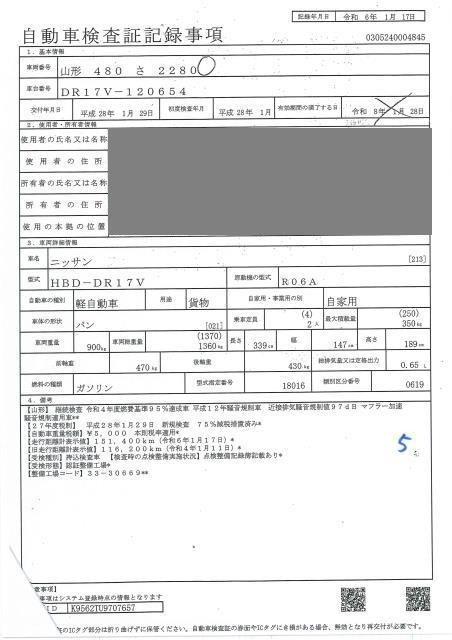 記録年月日 令和 6年 1月 17日
自動車検査証記録事項 0305240004845
1. 基本情報
車両番号 山形 480 さ 2280
車台番号 DR17V-120654
交付年月日 平成28年 1月 29日 初度検査年月 平成28年 1月 有効期間の満了する日 令和 8年 1月 28日
2. 使用者・所有者情報
使用者の氏名又は名称
使用者の住所
所有者の氏名又は名称
所有者の住所
使用の本拠の位置
3. 車両詳細情報
車名 ニッサン [213]
型式 HBD-DR17V 原動機の型式 R06A
自動車の種別 軽自動車 用途 貨物 自家用・事業用の別 自家用
車体の形状 バン [021] 乗車定員 (4) 2人 最大積載量 (250) 350kg
車両重量 900kg 車両総重量 (1370) 1360kg 長さ 339cm 幅 147cm 高さ 189cm
前軸重 470kg 後軸重 430kg 総排気量又は定格出力 0.65 L
燃料の種類 ガソリン 型式指定番号 18016 類別区分番号 0619
4. 備考
【山形】 継続検査 令和4年度燃費基準95%達成車 平成12年騒音規制車 近接排気騒音規制値97dB マフラー加速
騒音規制適用車**
【27年度税制】 平成28年1月29日 新規検査 75%減税措置済み*
【自動車重量税額】 ¥5,000 本則税率適用*
【走行距離計表示値】 151,400km (令和6年1月17日)*
【旧走行距離計表示値】 116,200km (令和4年1月11日)*
【受検種別】 持込検査車 【検査時の点検整備実施状況】 点検整備記録簿記載あり*
【受検形態】 認証整備工場*
【整備工場コード】 33-30669**
5
注意事項】
事項はシステム登録時点の情報となります
ID K9562TU9707657
のICタグ部分は折り曲げずに保管ください。自動車検査証の券面やICタグにき損がある場合、無効となり再交付が必要です。